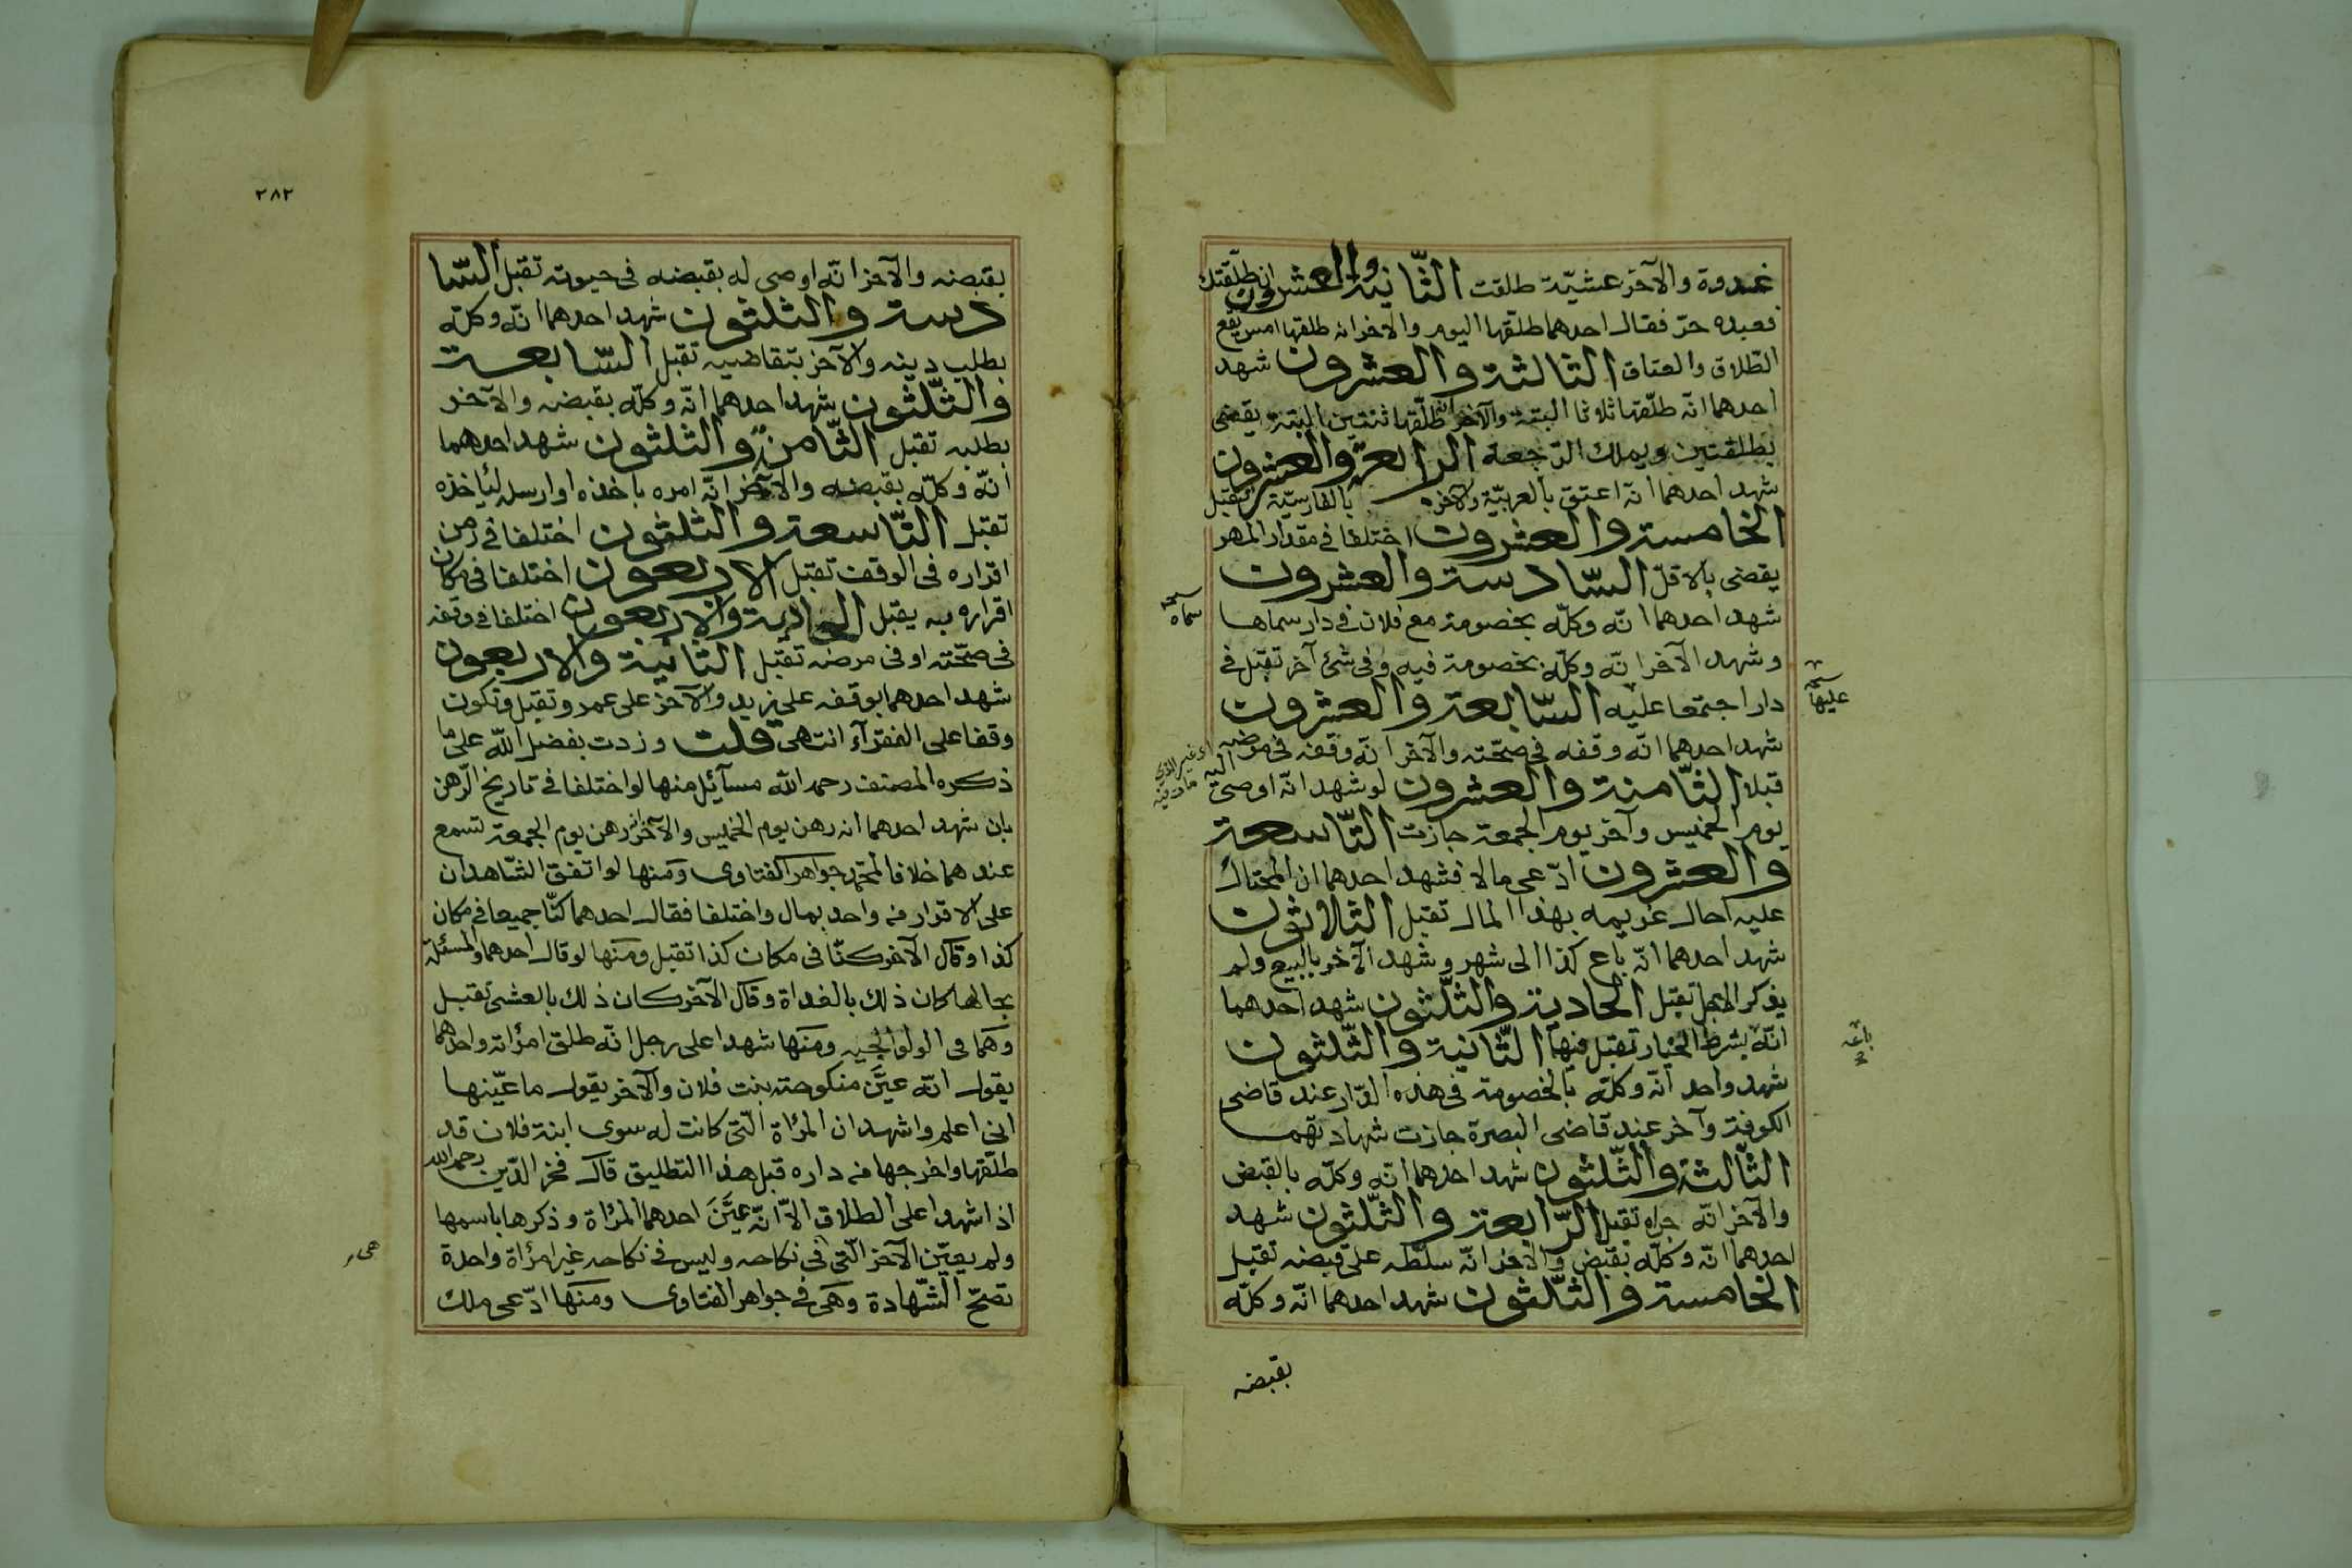 غدوة والآخر عشيّة طلقت الثّانية والعشرون ان طلّقتك
فعبده حرّ فقال احدهما طلّقها اليوم والاخر انه طلقها امس يقع
الطّلاق والعتاق الثالثة والعشرون شهد
احدهما انّه طلّقها ثلاثا البتة والآخر انه طلّقها ثنتين البتة يقضى
بطلقتين ويملك الرّجعة الرابعة والعشرون
شهد احدهما انّه اعتق بالعربيّة والآخر بالفارسيّة تقبل
الخامسة والعشرون اختلفا في مقدار المهر
يقضى بالاقلّ السّادسة والعشرون
شهد احدهما انّه وكلّه بخصومة مع فلان في دار سماها
وشهد الآخر انّه وكلّه بخصومة فيه وفى شئ آخر تقبل في
دار اجتمعا عليه السّابعة والعشرون
شهد احدهما انّه وقفه في صحّته والآخر انّه وقفه في مرضه
قبلا الثّامنة والعشرون لو شهد انّه اوصى اليه
يوم الخميس وآخر يوم الجمعة جازت التّاسعة
والعشرون ادّعى مالا فشهد احدهما ان المحتال
عليه احال غريمه بهذا المال تقبل الثلاثون
شهد احدهما انّه باع كذا الى شهر وشهد الآخر بالبيع ولم
يذكر الاجل تقبل الحادية والثّلثون شهد احدهما
انّه بشرط الخيار تقبل فيها الثّانية والثّلثون
شهد واحد انّه وكلّه بالخصومة فى هذه الدّار عند قاضى
الكوفة وآخر عند قاضى البصرة جازت شهادتهما
الثّالثة والثّلثون شهد احدهما انّه وكلّه بالقبض
والآخر انّه جراه تقبل الرّابعة والثّلثون شهد
احدهما انّه وكلّه بقبض والآخر انّه سلّطه على قبضه تقبل
الخامسة والثّلثون شهد احدهما انّه وكلّه
بقبضه
سماه
عليها
باعه
٢٨٢
بقبضه والآخر انّه اوصى له بقبضه فى حيوته تقبل السّا
دسة والثلثون شهد احدهما انّه وكلّه
بطلب دينه والآخر بتقاضيه تقبل السّابعة
والثّلثون شهد احدهما انّه وكلّه بقبضه والآخر
بطلبه تقبل الثّامنة والثلثون شهد احدهما
انّه وكلّه بقبضه والآخر انّه امره باخذه او ارسله ليأخذه
تقبل التّاسعة والثلثون اختلفا في زمن
اقراره فى الوقف تقبل الاربعون اختلفا في مكان
اقراره به يقبل الحادية والاربعون اختلفا في وقفه
فى صحّته او فى مرضه تقبل الثانية والاربعون
شهد احدهما بوقفه على زيد والآخر على عمرو تقبل وتكون
وقفا على الفقرآء انتهى قلت وزدت بفضل اللّه على ما
ذكره المصنف رحمه اللّه مسآئل منها لو اختلفا في تاريخ الرّهن
بان شهد احدهما انه رهن يوم الخميس والآخر انه رهن يوم الجمعة تسمع
عندهما خلافا لمحمّد جواهر الفتاوى ومنها لو اتفق الشّاهدان
على الاقرار من واحد بمال واختلفا فقال احدهما كنّا جميعا في مكان
كذا وقال الآخر كنّا فى مكان كذا تقبل ومنها لو قال احدهما والمسئلة
بحالها كان ذلك بالغداة وقال الآخر كان ذلك بالعشىّ تقبل
وهما فى الولوالجيه ومنها شهدا على رجل انّه طلق امرأته واحدهما
يقول انّه عيّن منكوحته بنت فلان والآخر يقول ما عيّنها
انى اعلم واشهد ان المرأة الّتى كانت له سوى ابنة فلان قد
طلّقها واخرجها من داره قبل هذا التطليق قال فخر الدّين رحمه الله
اذا شهدا على الطلاق الاّ انّه عيّن احدهما المرأة وذكرها باسمها
ولم يعيّن الآخر الّتى فى نكاحه وليس في نكاحه غير امرأة واحدة
تصحّ الشّهادة وهى في جواهر الفتاوى ومنها ادّعى ملك